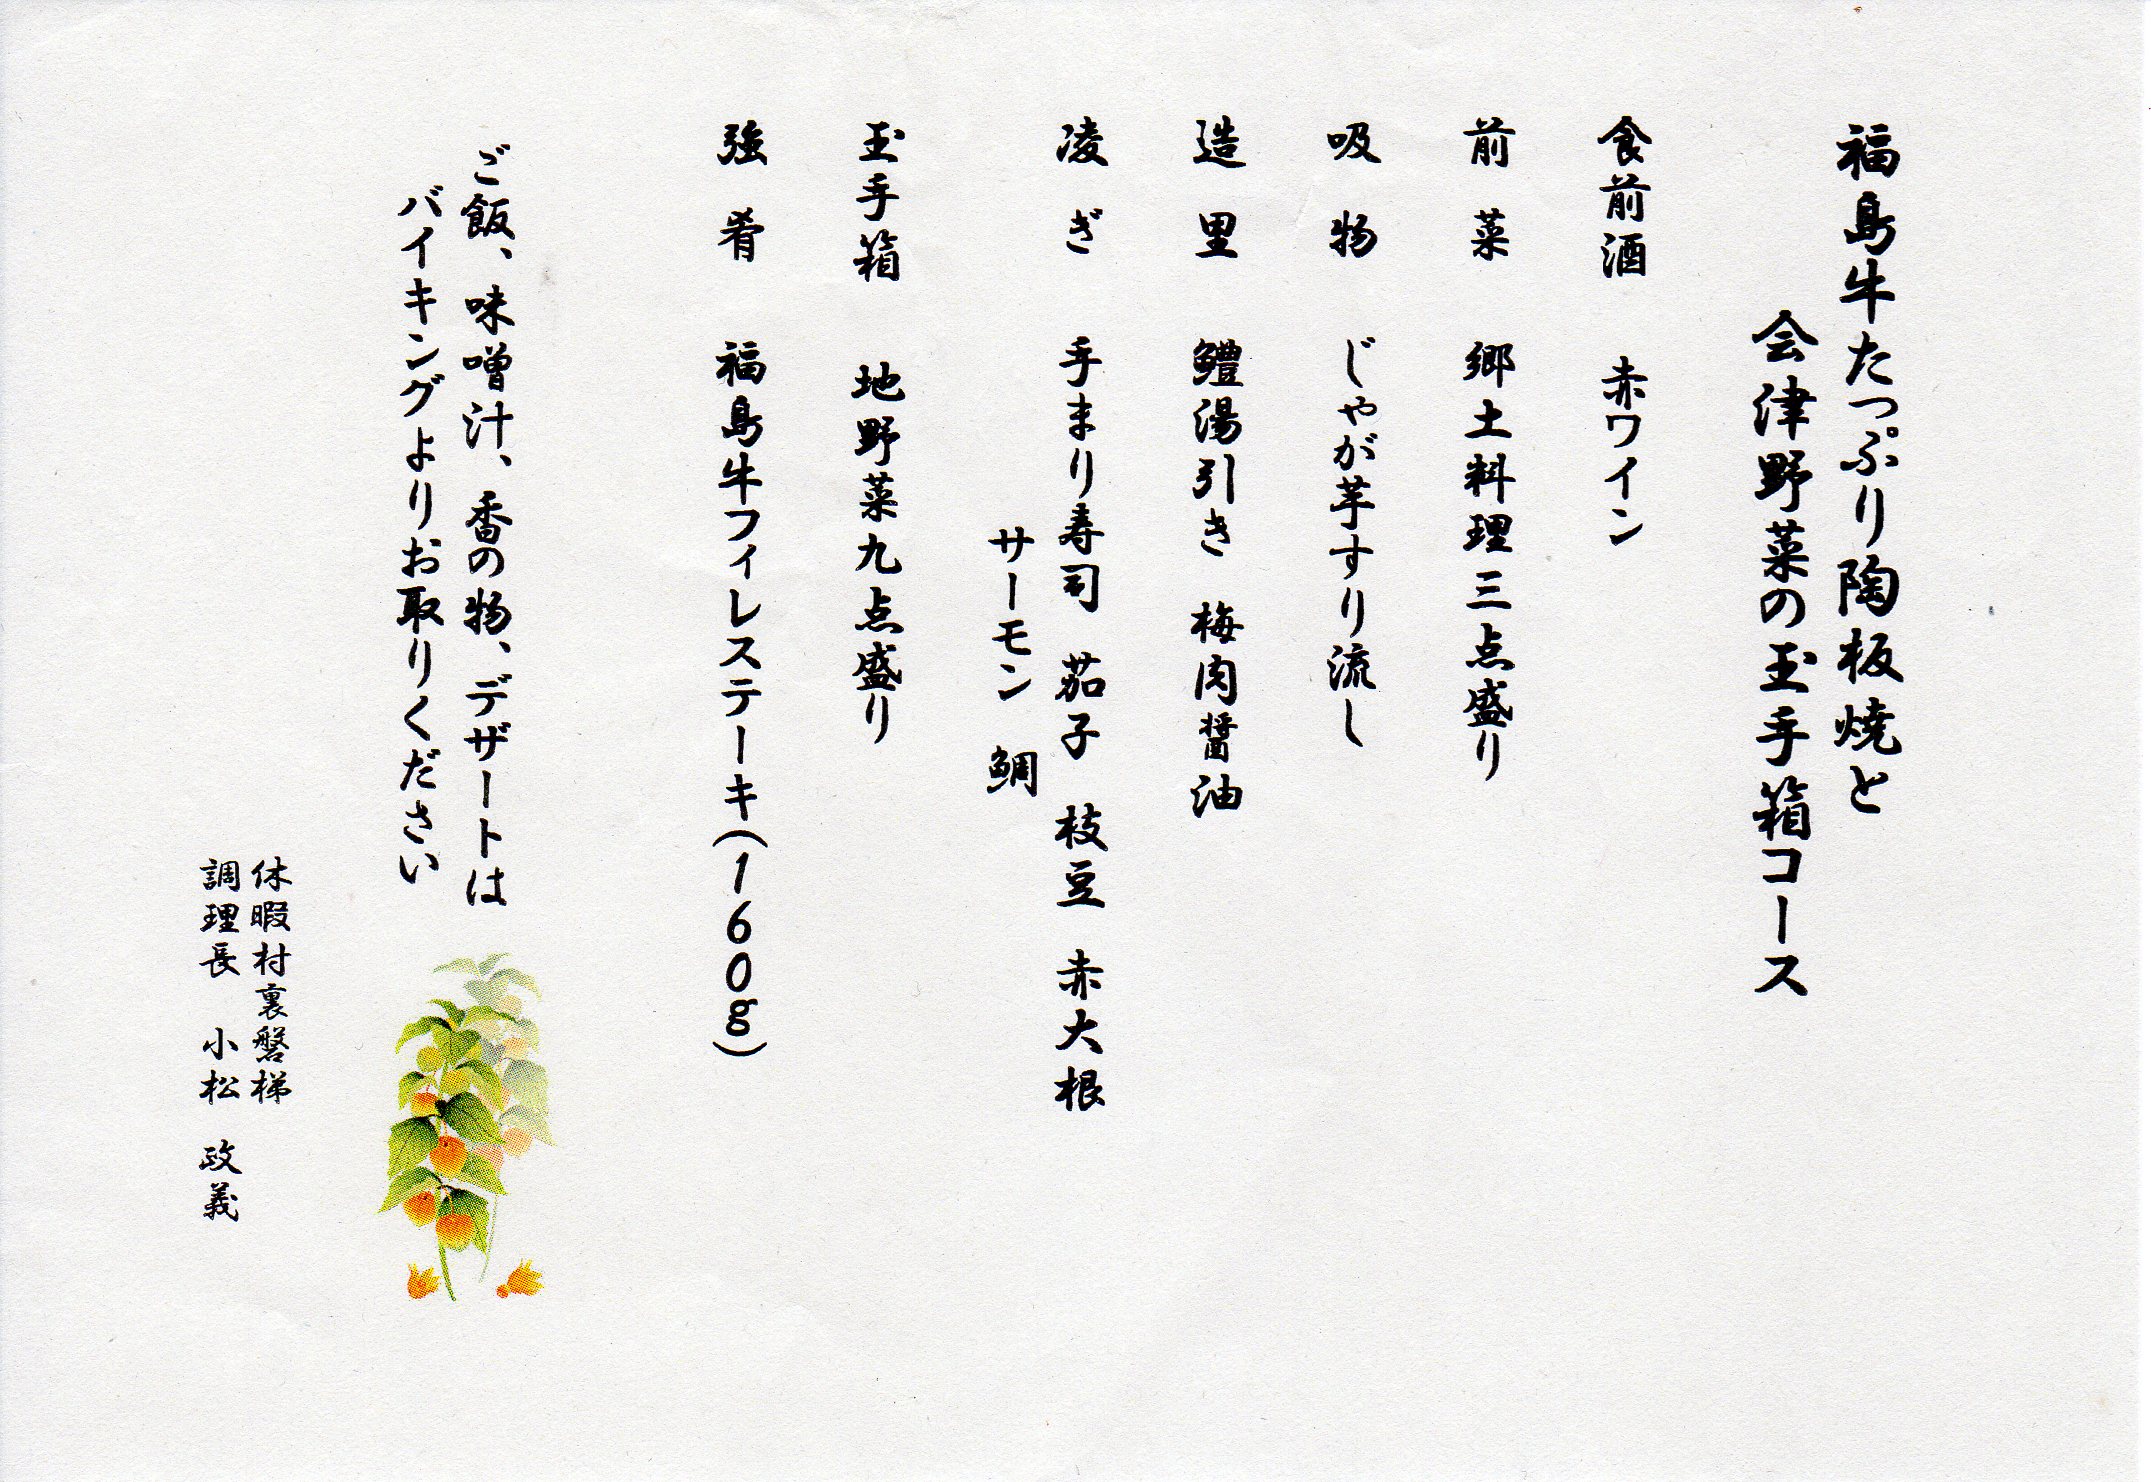 福島牛たっぷり陶板焼と
会津野菜の玉手箱コース
食前酒　赤ワイン
前　菜　郷土料理三点盛り
吸　物　じゃが芋すり流し
造　里　鱧湯引き　梅肉醤油
凌　ぎ　手まり寿司　茄子　枝豆　赤大根
サーモン　鯛
玉手箱　地野菜九点盛り
強　肴　福島牛フィレステーキ(160g)
ご飯、味噌汁、香の物、デザートは
バイキングよりお取りください
休暇村裏磐梯
調理長　小松　政義